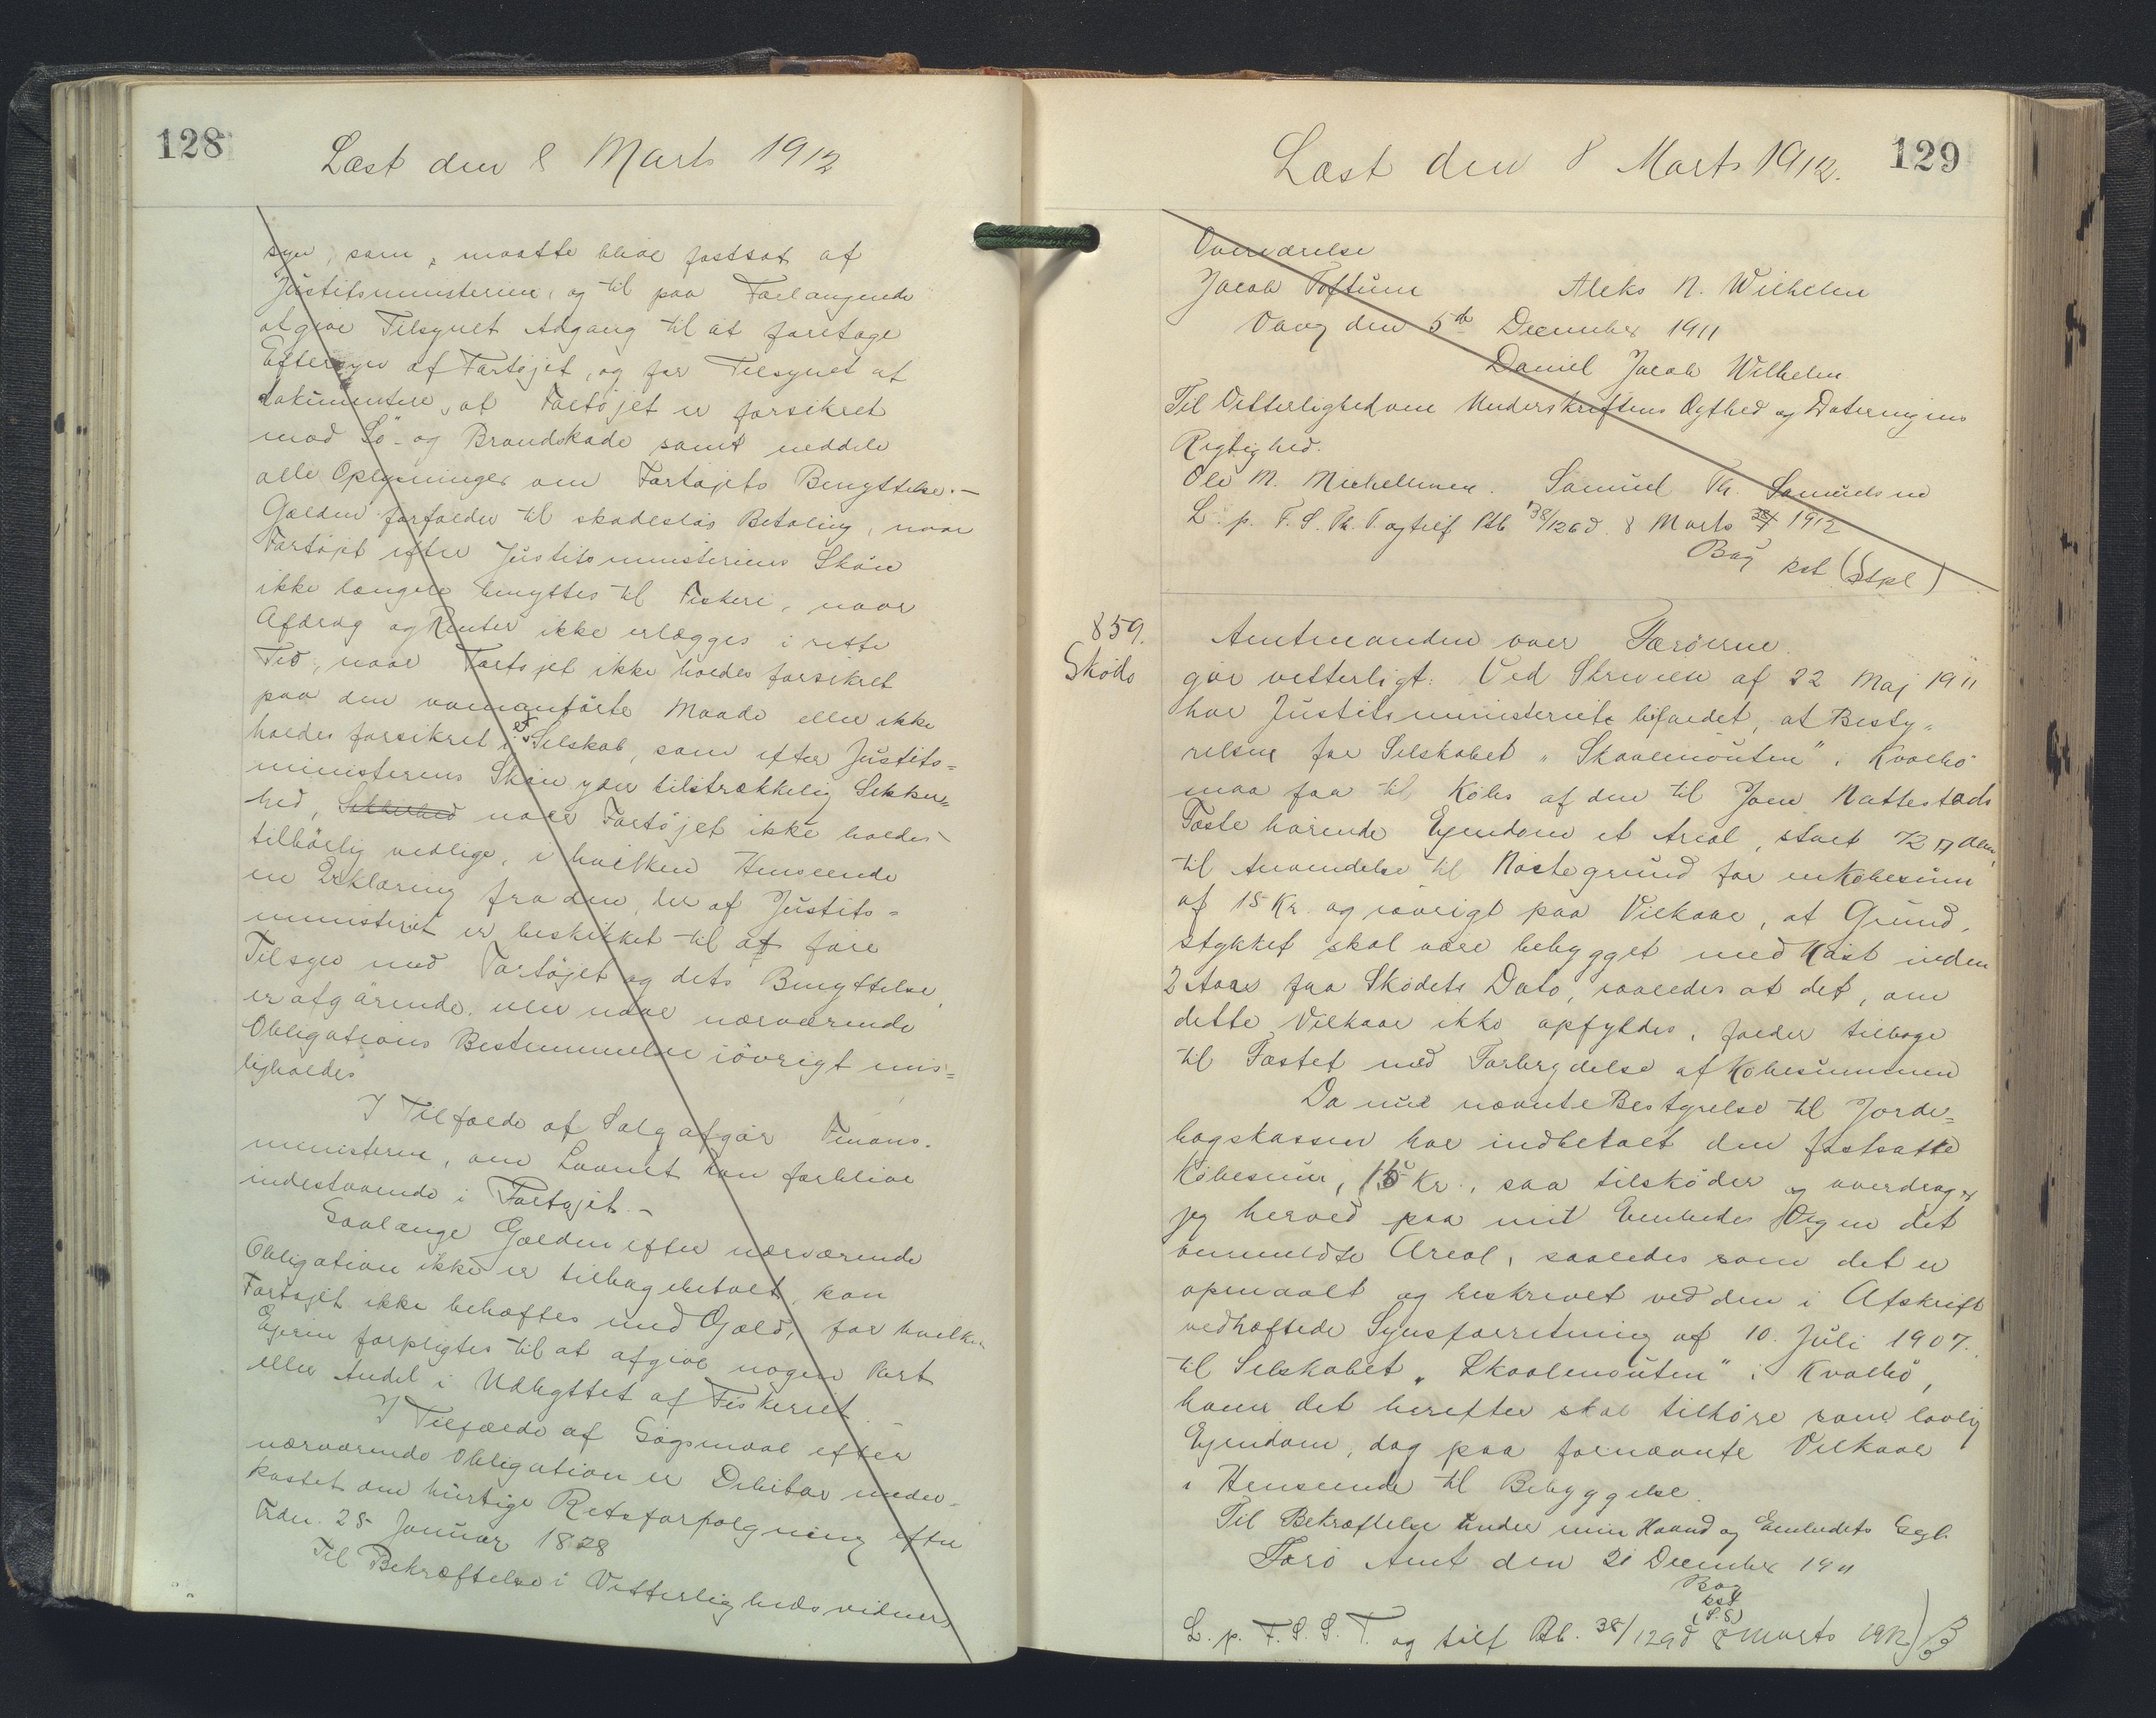 128
Læst den 8 Marts 1912
syn, som maatte blive fastsat af
Justitsministeriet, og til paa Forlangende
at give Tilsynet Adgang til at foretage
Eftersyn af Fartøjet, og for Tilsynet at
dokumentere, at Fartøjet er forsikret
mod Sö- og Brandskade samt meddele
alle Oplysninger om Fartøjets Benyttelse.-
Gælden forfalder til skadeslös Betaling, naar
Fartøjet efter Justitsministeriets Skön
ikke længere benyttes til Fiskeri, naar
Afdrag og Renter ikke erlægges i rette
Tid, naar Fartøjet ikke holdes forsikret
paa den ovenanförte Maade eller ikke
holdes forsikret i et Selskab, som efter Justits=
ministeriets Skön yder tilstrækkelig Sikker=
hed, Sikkerhed naar Fartøjet ikke holdes
tilbörlig vedlige, i hvilken Henseende
en Erklæring fra den, der af Justits=
ministeriet er beskikket til at före
Tilsyn med Fartøjet og dets Benyttelse,
er afgörende, eller naar nærværende
Obligations Bestemmelser iövrigt mis=
ligholdes
I Tilfælde af Salg afgör Finans-
ministeren, om Laanet kan forblive
indestaaende i Fartøjet.-
Saalænge Gælden efter nærværende
Obligation ikke er tilbagebetalt, kan
Fartøjet ikke behæftes med Gæld, for hvilken
Ejeren forpligtes til at afgive nogen Part
eller Andel i Udbyttet af Fiskeriet.-
I Tilfælde af Sögsmaal efter
nærværende Obligation er Debitor under-
kastet den hurtige Retsforfølgning efter
Frdn. 25 Januar 1828
Til Bekræftelse i Vitterlighedsvidners
129
Læst den 8 Marts 1912.
Overværelse
Jacob Toftum Aleks N. Wilhelm
Vaag den 5te December 1911
Daniel Jacob Wilhelm
Til Vitterlighed om Underskriftens Ægthed og Dateringens
Rigtighed.
Ole M. Michelsen. Samuel Th. Samuelsen
L. p. F. S. Th. T. og tilf Ptb. 38/126 d. 8 Marts 1912
Bag kst (Stpl)
859.
Skøde
Amtmanden over Færöerne
gör vitterligt: Ved Skrivelse af 22 Maj 1911
har Justitsministeriet bifaldet, at Besty-
relsen for Selskabet "Skaalenouten" i Kvalbö
maa faa til Köbs af den til Joen Nattestads
Fæste hörende Ejendom et Areal, stort 72 □ Alen,
til Anvendelse til Nöstegrund for en Köbesum
af 15 Kr. og iövrigt paa Vilkaar, at Grund-
stykket skal være bebygget med Nöst inden
2 Aar fra Sködets Dato, saaledes at det, om
dette Vilkaar ikke opfyldes, falder tilbage
til Fæstet med Forbrydelse af Köbesummen
Da nu nævnte Bestyrelse til Jorde=
bogskassen har indbetalt den fastsatte
Köbesum, 15 Kr., saa tilsköder og overdrager
jeg herved paa mit Embedes Vegne det
ommeldte Areal, saaledes som det er
opmaalt og beskrevet ved den i Afskrift
vedhæftede Synsforretning af 10. Juli 1907.
til Selskabet "Skaalenouten" i Kvalbö,
hvem det herefter skal tilhøre som lovlig
Ejendom, dog paa fornævnte Vilkaar
i Henseende til Bebyggelse.
Til Bekræftelse under min Haand og Embedets Segl.
Færö Amt den 21 December 1911
Bag
kst
(L.S)
L. p. F. S. S. T. og tilf Ptb. 38/129 d 8 Marts 1912)